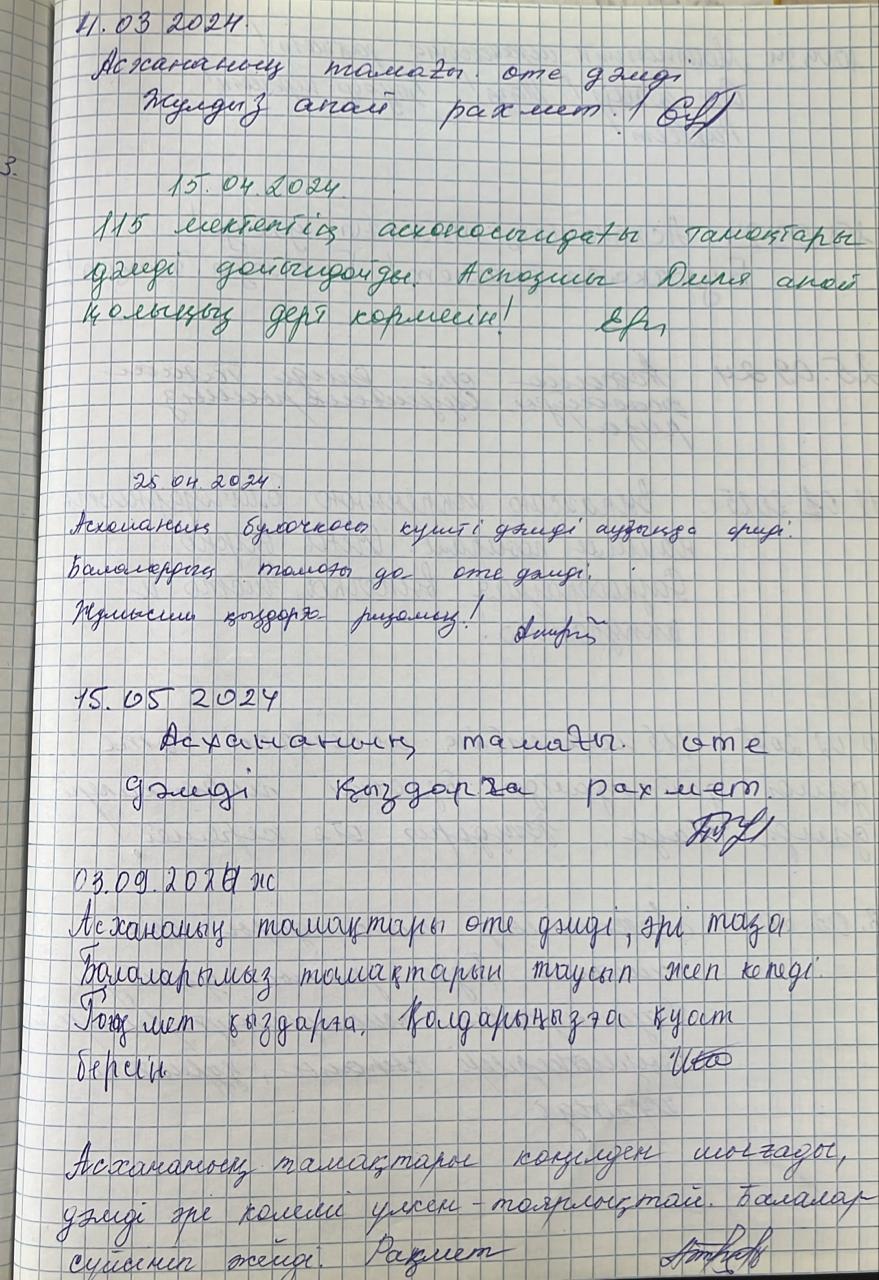 11.03 2024.
Асхананың тамағы. оте дәмді
Жулдыз апай рахмет.!
3.
15.04.2024.
115 мектептің асханасындағы тамақтары
дәмді дайындайды. Аспазшы Диля апай
қолыңыз дерт кормесін!
25 04 2024.
Асхананың булочкасы кушті дәмді аузыңда ериді.
Балалардың тамағы да оте дәмді.
Жұмысшы қыздарға ризамыз!
15.05 2024
Асхананың тамағы. оте
дәмді қыздарға рахмет.
03.09.2024 жс
Асхананың тамақтары оте дәмді, әрі таза
Балаларымыз тамақтарын таусып жеп келеді.
мет қыздарға, Қолдарыңызға қуат
берсін
Асхананың тамақтары көңілден шығады,
дәмді әрі колемі үлкен - тоярлықтай. Балалар
сүйсініп жейді. Рақмет